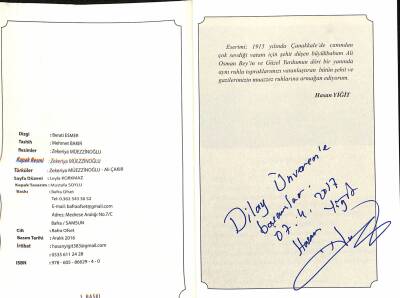 Dizgi : Berati ESMER
Tashih : Mehmet BAKIR
Resimler : Zekeriya MÜEZZİNOĞLU
Kapak Resmi : Zekeriya MÜEZZİNOĞLU
Türküler : Zekeriya MÜEZZİNOĞLU - Ali ÇAKIR
Sayfa Düzeni : Leyla KORKMAZ
Kapak Tasarım : Mustafa SOYLU
Baskı : Bafra Ofset
Tel: 0.362 543 50 52
E-mail: bafraofset@gmail.com
Adres: Medrese Aralığı No:7/C
Bafra / SAMSUN
Cilt : Bafra Ofset
Basım Tarihi : Aralık 2016
İrtibat : hasanyigit383@gmail.com
: 0535 611 24 28
ISBN : 978 - 605 - 66629 - 4 - 0
2. BASKI
Eserimi; 1915 yılında Çanakkale'de canından
çok sevdiği vatanı için şehit düşen büyükbabam Ali
Osman Bey'in ve Güzel Yurdumun dört bir yanında
aynı ruhla topraklarımızı vatanlaştıran bütün şehit ve
gazilerimizin muazzez ruhlarına armağan ediyorum.
Hasan YİĞİT
Dilay Ünveren'e
başarılar.
07.4.2017
Hasan Yiğit